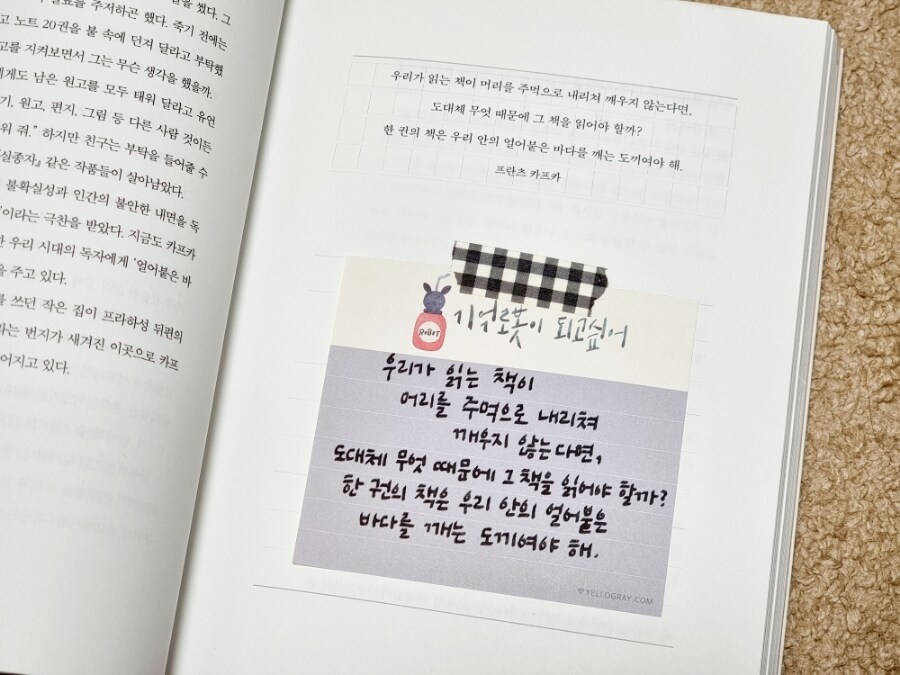 을 썼다. 그
발표를 주저하곤 했다. 죽기 전에는
고 노트 20권을 불 속에 던져 달라고 부탁했
고를 지켜보면서 그는 무슨 생각을 했을까.
에게도 남은 원고를 모두 태워 달라고 유언
기, 원고, 편지, 그림 등 다른 사람 것이든
워 줘." 하지만 친구는 부탁을 들어줄 수
실종자』 같은 작품들이 살아남았다.
불확실성과 인간의 불안한 내면을 독
"이라는 극찬을 받았다. 지금도 카프카
한 우리 시대의 독자에게 '얼어붙은 바
을 주고 있다.
를 쓰던 작은 집이 프라하성 뒤편의
라는 번지가 새겨진 이곳으로 카프
어지고 있다.
우리가 읽는 책이 머리를 주먹으로 내리쳐 깨우지 않는다면,
도대체 무엇 때문에 그 책을 읽어야 할까?
한 권의 책은 우리 안의 얼어붙은 바다를 깨는 도끼여야 해.
프란츠 카프카
ROBOT
기억로봇이 되고싶어
우리가 읽는 책이
머리를 주먹으로 내리쳐
깨우지 않는다면,
도대체 무엇 때문에 그 책을 읽어야 할까?
한 권의 책은 우리 안의 얼어붙은
바다를 깨는 도끼여야 해.
YELLOGRAY.COM